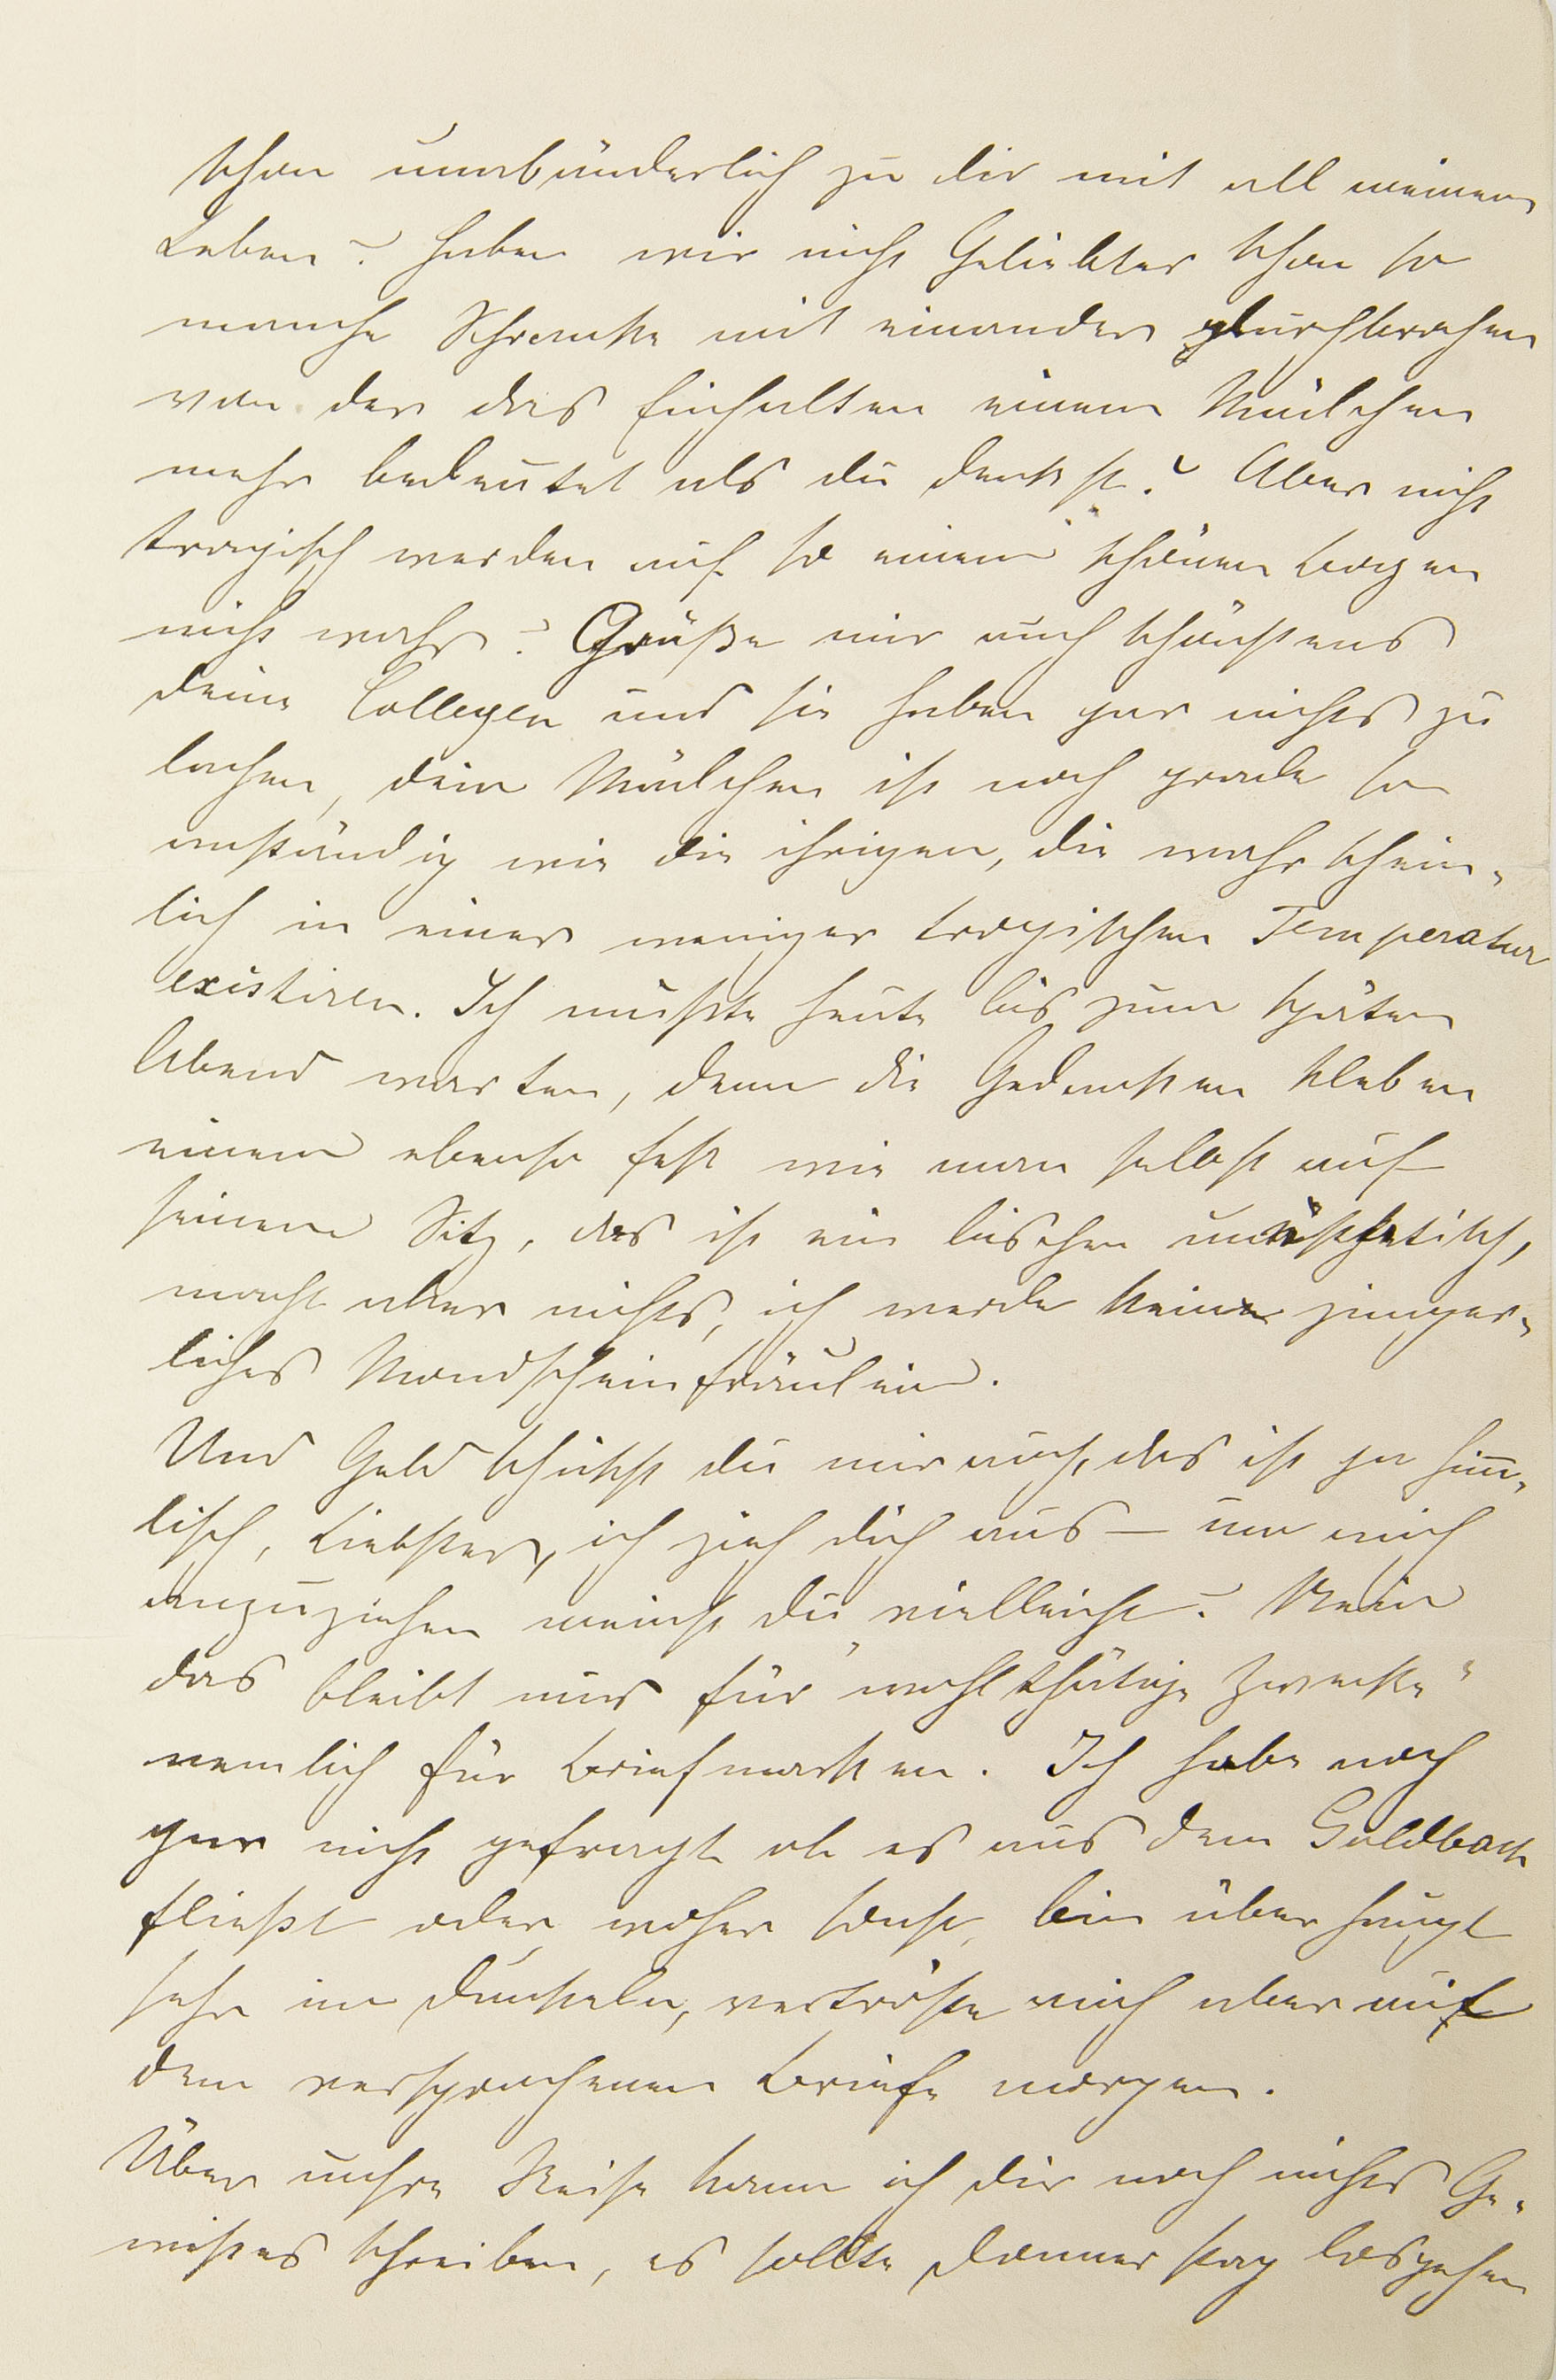 schon unabänderlich zu dir mit all meinem
Leben? Haben wir nicht Geliebter schon so
manche Schranke mit einander durchbrochen
von der das Einhalten einem Mädchen
mehr bedeutet als du denkst? Aber nicht
tragisch werden auf so einem schönen Bogen
nicht wahr? Grüße mir auch schönstens
deine Collegen und sie haben gar nichts zu
lachen, dein Mädchen ist noch grade so
anständig wie die ihrigen, die wahrschein-
lich in einer weniger tragischen Temperatur
existiren. Ich mußte heute bis zum späten
Abend warten, denn die Gedanken kleben
einem ebenso fest wie man selbst auf
seinem Sitz, das ist ein bischen unästhetisch,
macht aber nichts, ich werde kein zimper-
liches Mondscheinfräulein.
Und Geld schickst du mir auch, das ist ja him-
lisch, Liebster, ich zieh dich aus — um mich
anzuziehen meinst du vielleicht? Nein
das bleibt nur für "wohlthätige Zwecke"
nemlich für Briefmarken. Ich habe noch
gar nicht gefragt ob es aus dem Goldbach
fließt oder woher sonst, bin überhaupt
sehr im Dunkeln, vertröste mich aber auf
den versprochenen Briefe morgen.
Über unsre Reise kann ich dir noch nichts Ge-
wißes schreiben, es sollte Donnerstag losgehen